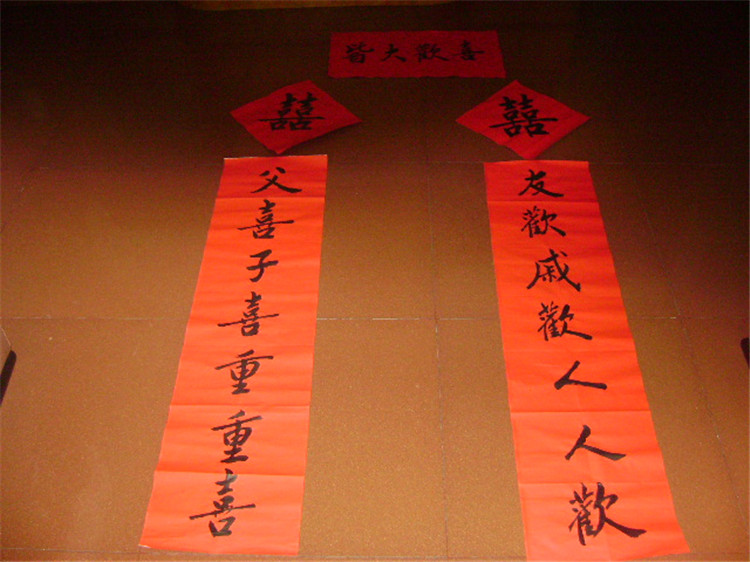 皆大歡喜
囍
囍
父喜子喜重重喜
友歡戚歡人人歡